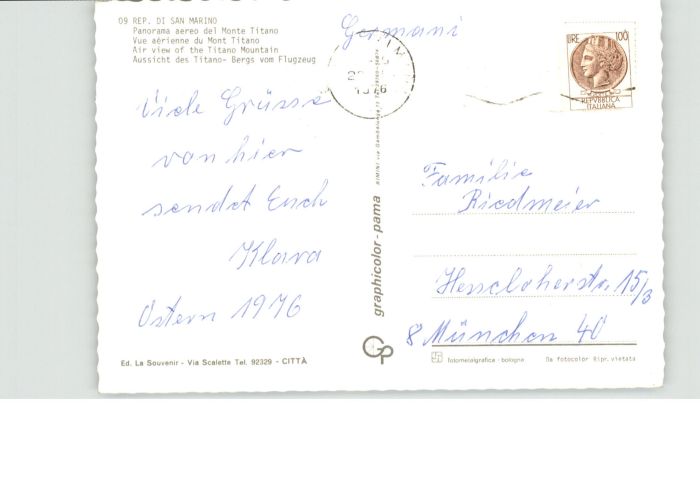 09 REP. DI SAN MARINO
Panorama aereo del Monte Titano
Vue aérienne du Mont Titano
Air view of the Titano Mountain
Aussicht des Titano- Bergs vom Flugzeug
Germani
LIRE 100
REPVBBLICA
ITALIANA
1976
Viele Grüsse
von hier
sendet Euch
Klara
Ostern 1976
graphicolor-pama
RIMINI via
Familie
Riedmeier
Hesseloherstr. 15/3
8 München 40
GP
Ed. La Souvenir - Via Scalette Tel. 92329 - CITTÀ
fotometalgrafica - bologna
Da fotocolor Ripr. vietata